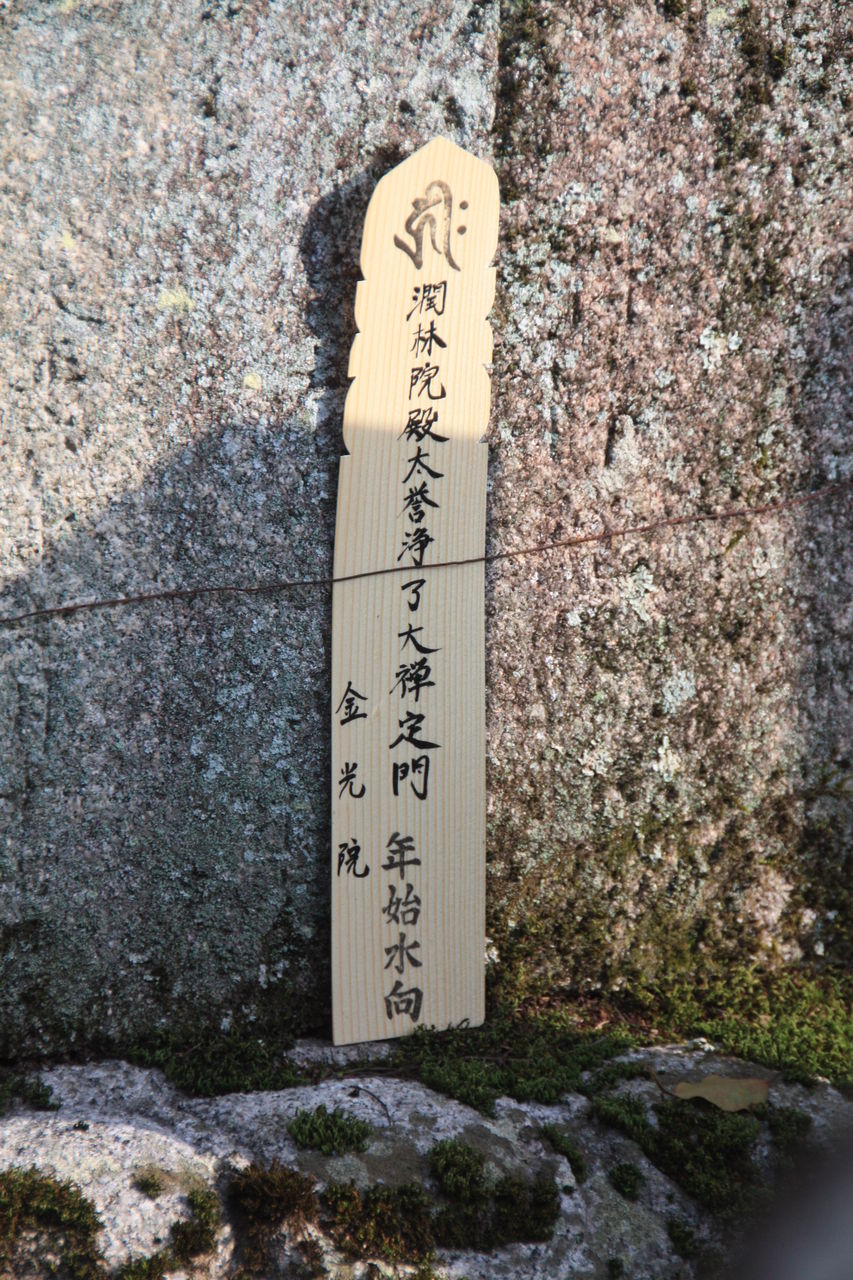 𑖮𑖿𑖨𑖱𑖾
潤林院殿太誉浄了大禅定門 年始水向
金光院